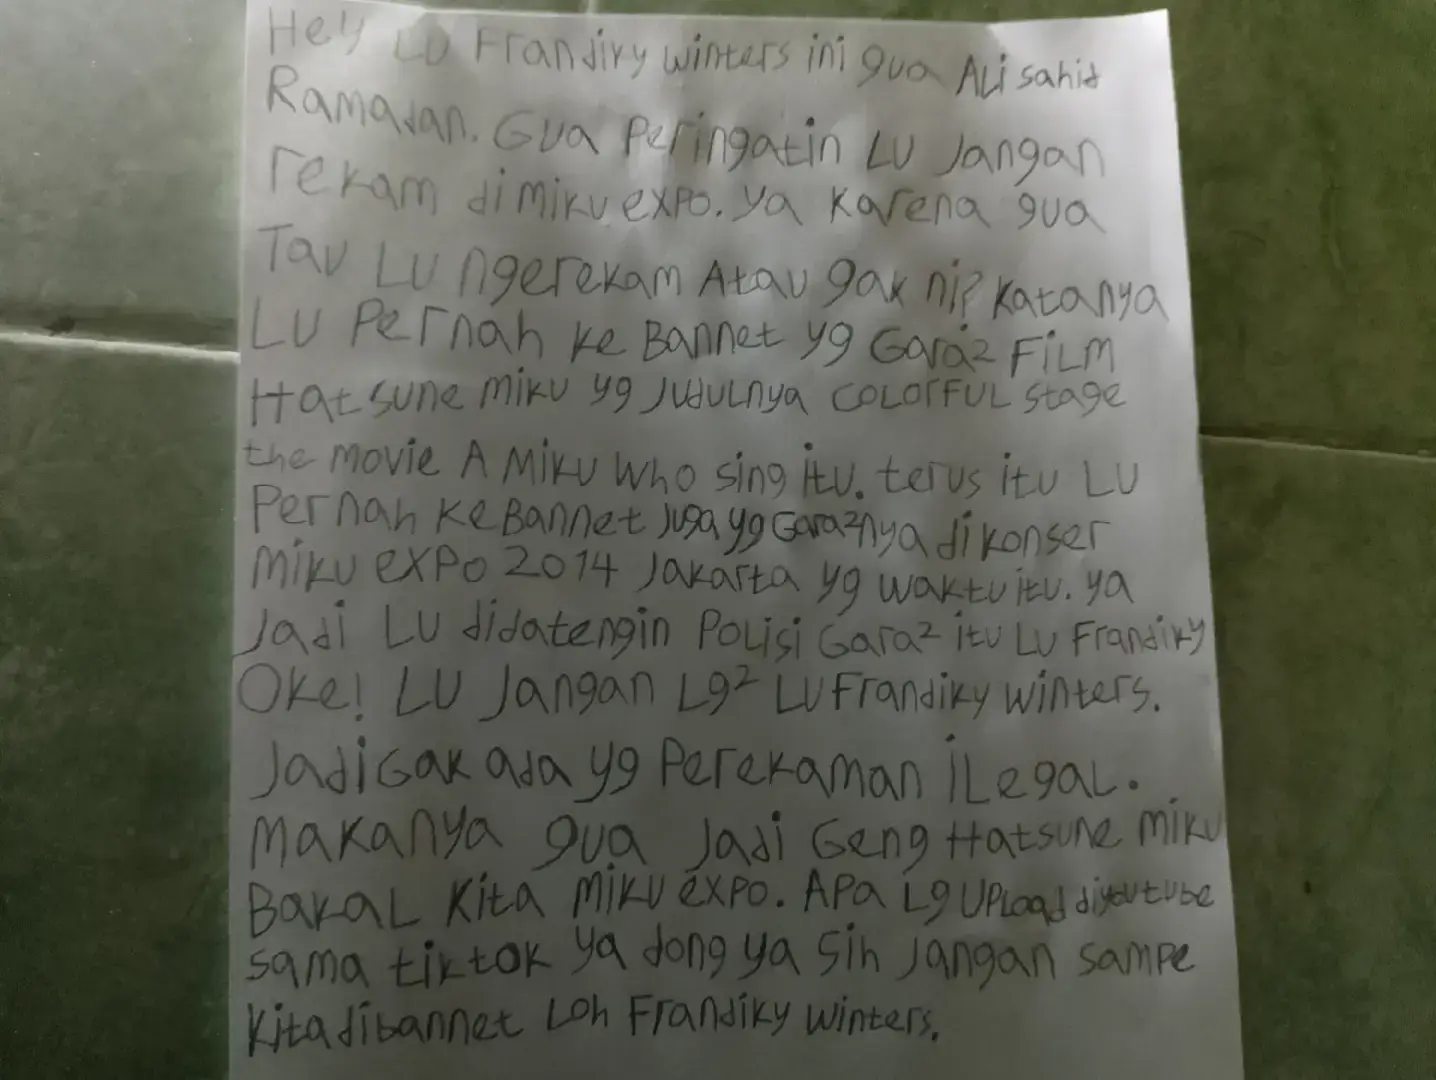 Hey LU Frandiky winters ini gua ALi sahid
Ramadan. Gua Peringatin LU Jangan
rekam di miku expo. ya karena gua
Tau LU ngerekam Atau gak ni? katanya
LU Pernah ke Bannet yg Gara2 FiLM
Hatsune miku yg JuduLnya COLOrFUL stage
the movie A Miku Who sing itu. terus itu LU
Pernah ke Bannet juga yg Gara2nya di konser
Miku expo 2014 Jakarta yg waktu itu. ya
Jadi LU didatengin POLisi Gara2 itu LU Frandiky
Oke! LU Jangan Lg2 LU Frandiky winters.
Jadi Gak ada yg Perekaman iLegaL.
Makanya gua Jadi Geng Hatsune Miku
BakaL Kita Miku expo. APa Lg UPLoad diyoutube
sama tiktok ya dong ya Sih Jangan sampe
kita dibannet Loh Frandiky winters.